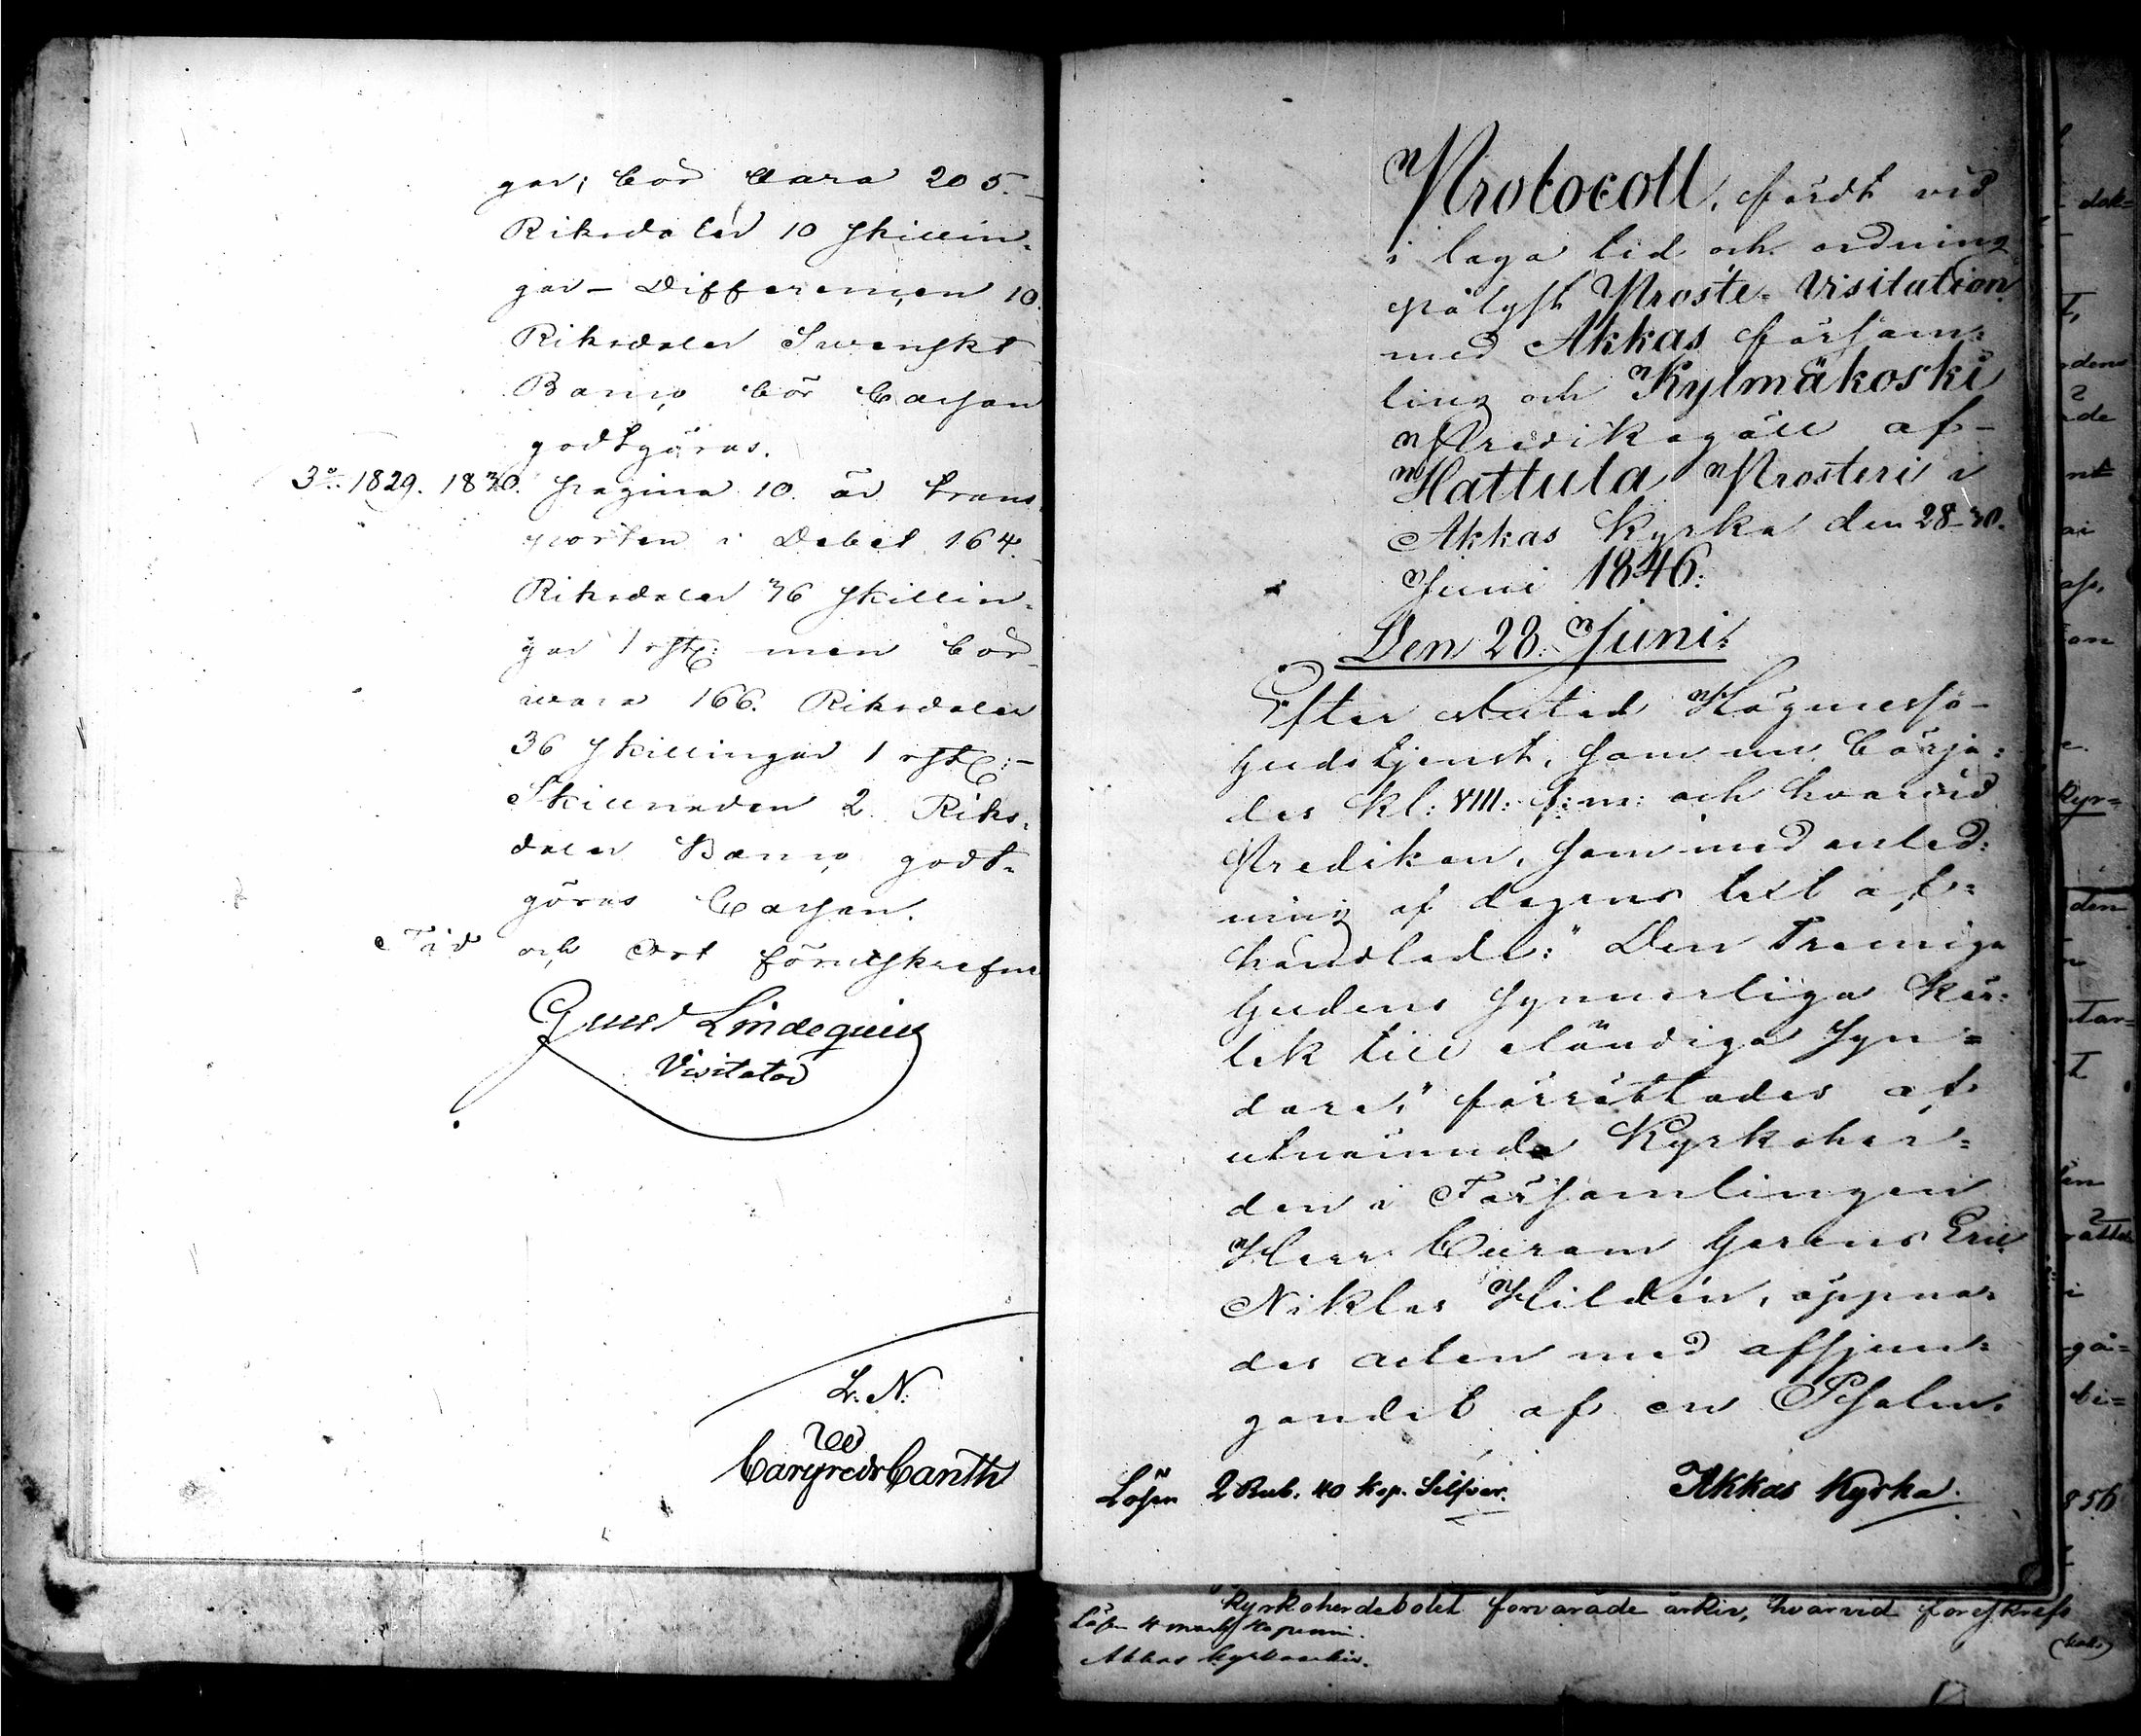 gar; bör vara 205.
Riksdaler 10 skillin-
gar – Differencen 10.
Riksdaler Swenskt
Banco bör Cassan
godtgöras.
3:o 1829. 1830. pagina 10. är trans-
porten i Debet 164.
Riksdaler 36 skillin-
gar 1 rst: men bör
wara 166. Riksdaler
36 skillingar 1 rst: –
Skillnaden 2. Riks-
daler Banco godt-
göras Cassan.
Tid och Ort förutskrefne
Lindequist
Visitator
L. N.
Canth
Protocoll, fördt vid
i laga tid och ordning
pålyst Proste-Visitation
med Akkas försam-
ling och Kylmäkoski
Predikogäll af
Hattula Prosteri i
Akkas Kyrka den 28-30.
Juni 1846:
Den 28. Juni:
Efter slutad Högmesso-
gudstjenst, som nu börja-
des kl: VIII: f: m: och hvarvid
Predikan, som med anled-
ning af dagens text af-
handlade: "Den Treeniga
Gudens synnerliga kär-
lek till eländiga syn-
dare," förrättades af
utnämnda Kyrkoher-
den i Församlingen
Herr Curam Gerens Eric
Niklas Hildén, öppna-
des acten med afsjun-
gandet af en Psalm.
Lösen 2 Rub. 40 kop. Silfver. Akkas Kyrka.
kyrkoherdebolet förvarade arkiv, hvarvid föreskrefs
Lösen 4 mark
Akkas kyrkoarkiv.